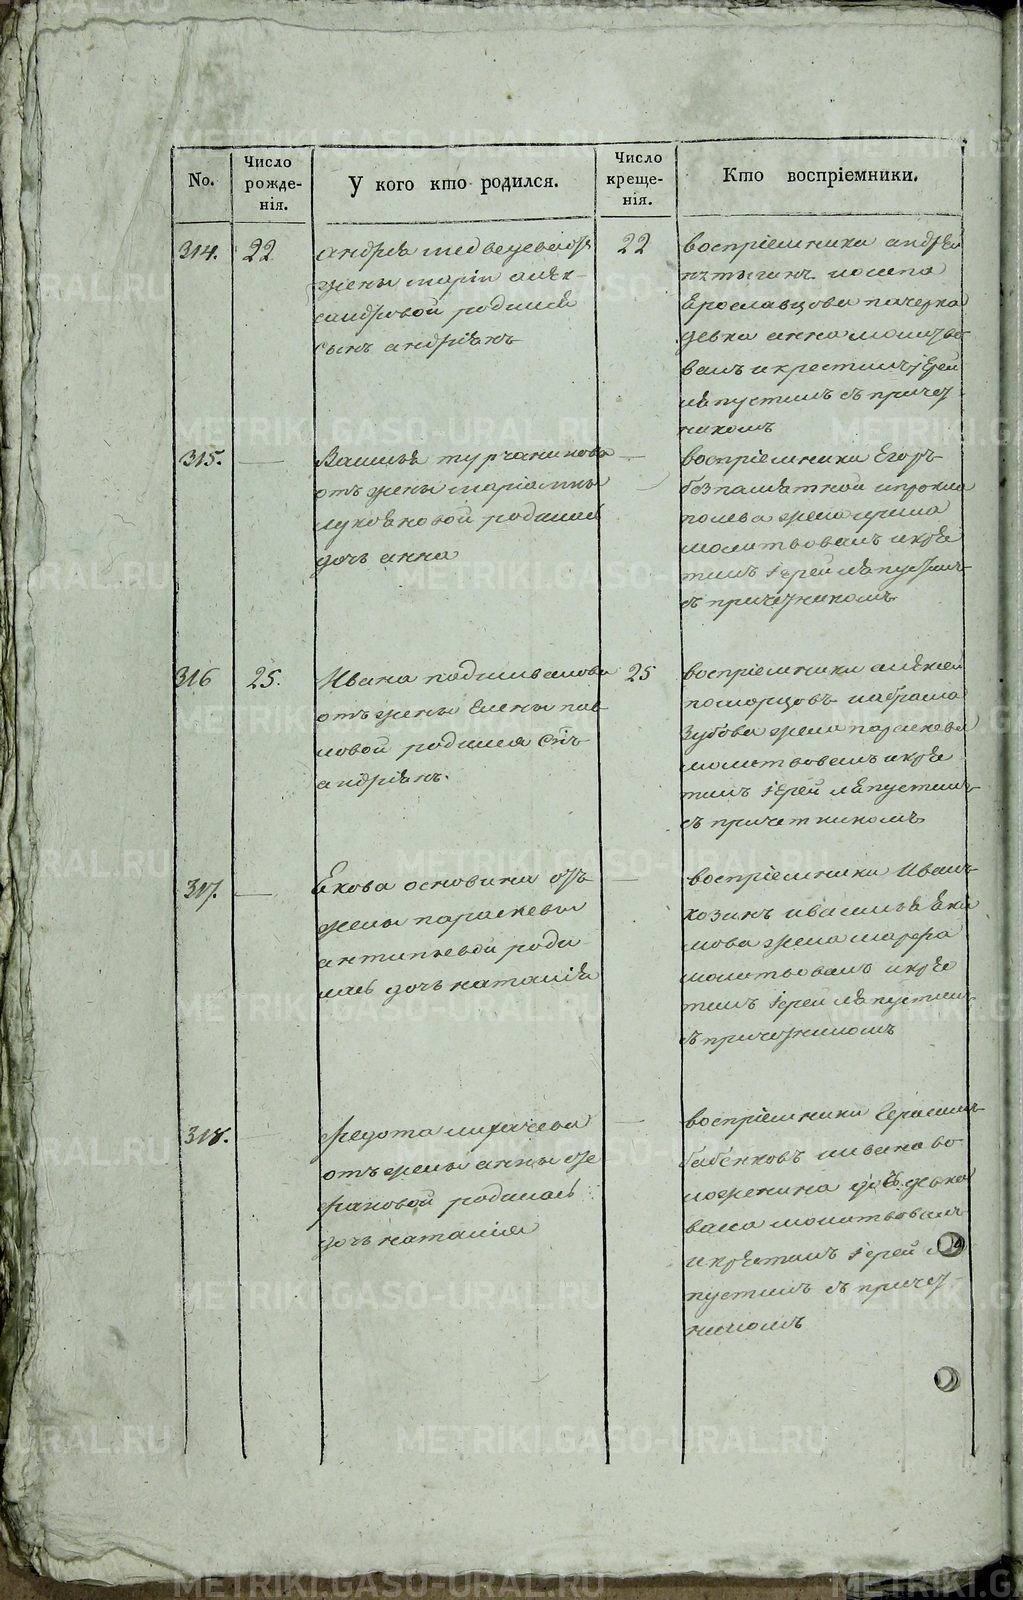 No.
Число рожде-нія.
У кого кто родился.
Число креще-нія.
Кто воспріемники.
314.
22
андрѣя медведева отъ
жены маріи алек-
сандровой родился
сынъ андріянъ
22
воспріемники андрей
иосипа
ярославцова
девка анна молитво
валъ и крестилъ іерей
лапустинъ съ причет
никомъ
315.
—
Василья турчанинова
отъ жены маріамны
лукьяновой родилась
дочь анна
—
воспріемники Егоръ
безпамятной
жена ирина
молитвовалъ и кре
тилъ іерей лапустинъ
съ причетникомъ
316
25.
Ивана подшивалова
отъ жены Елены пав
ловой родился сынъ
андріянъ.
25
воспріемники алексей
поморцовъ и абрама
Зубова жена парасковья
молитвовалъ и кре
тилъ іерей лапустинъ
съ причетникомъ
317.
—
Якова основина отъ
жены парасковьи
антипьевой роди
лась дочь наталія
—
воспріемники Иванъ
козинъ и василья яки
мова жена марфа
молитвовалъ и кре
тилъ іерей лапустинъ
съ причетникомъ
318.
—
Федота лихачева
отъ жены анны сте
фановой родилась
дочь наталія
—
воспріемники Герасимъ
бабенковъ и ивана во
ложенина дочь девка
молитвовалъ
и кретилъ іерей ла
пустинъ съ причет
никомъ
METRIKI.GASO-URAL.RU